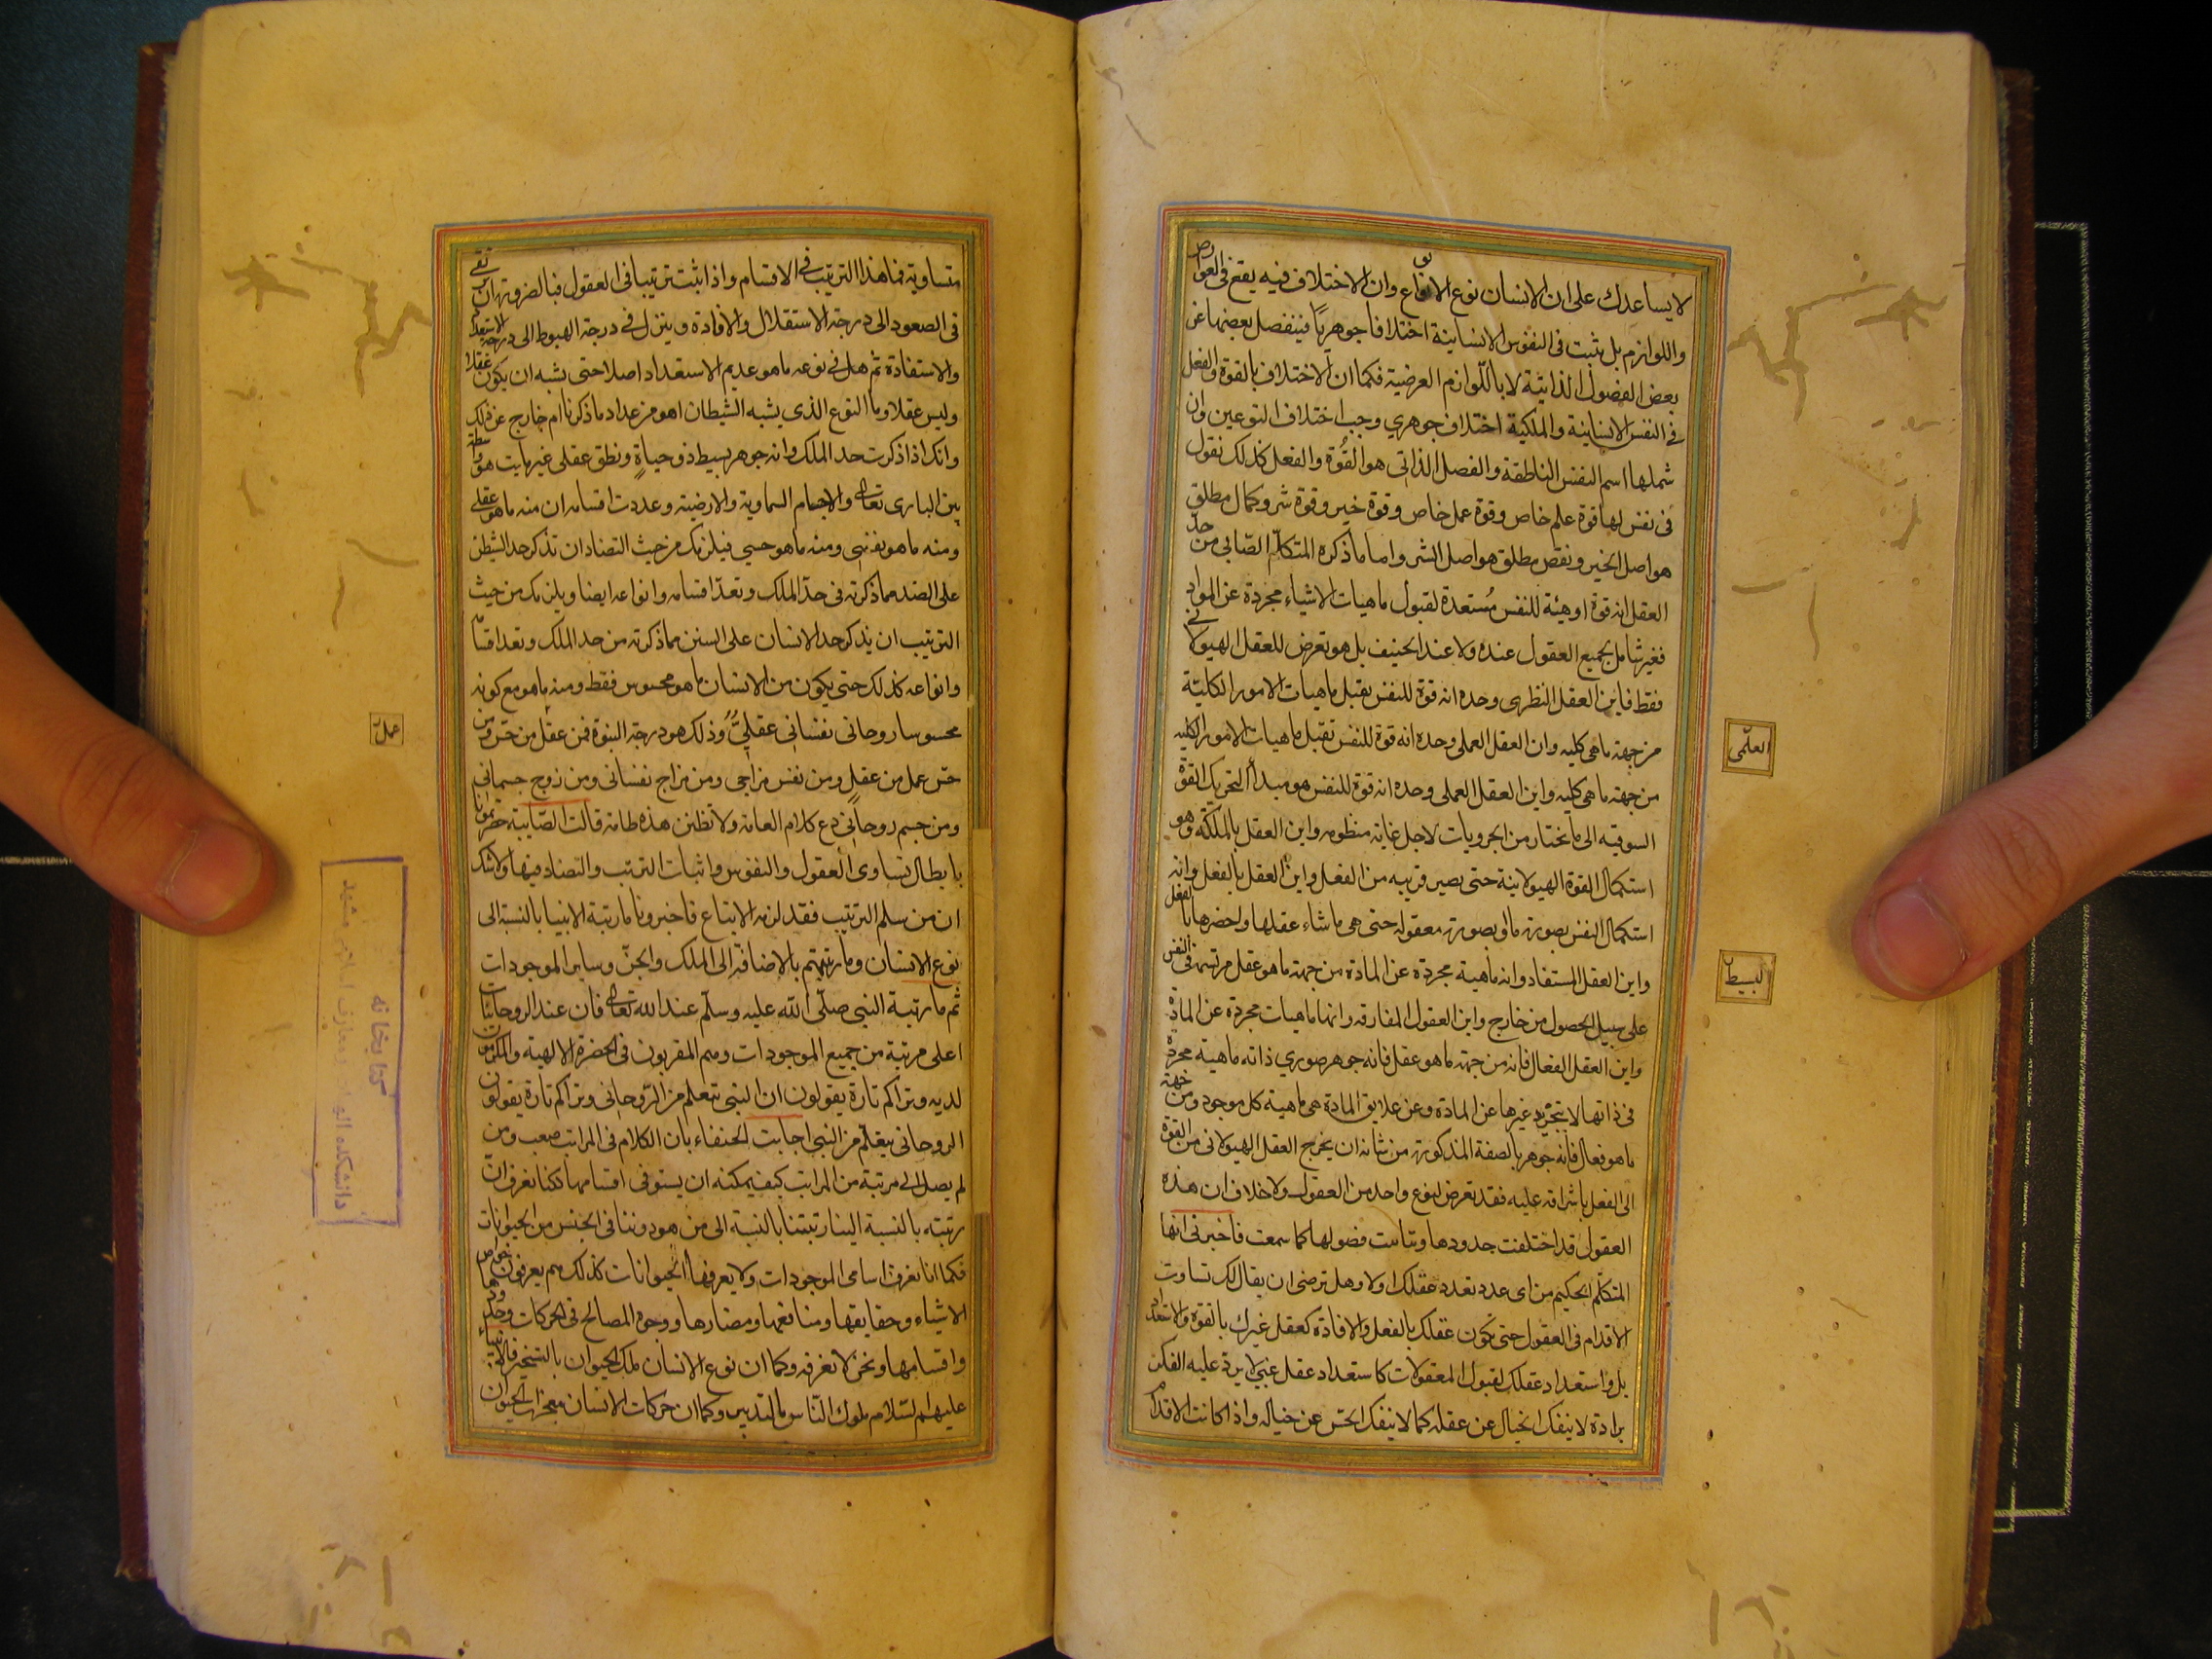 لا يساعدك على ان الانسان نوع الانواع وان الاختلاف فيه يقع فى العوارض
واللوازم بل يثبت فى النفوس الانسانية اختلافا جوهريًا فينفصل بعضها عن
بعض الفصول الذاتية لا باللّوازم العرضية فكما ان الاختلاف بالقوة والفعل
فى النفس الانسانية والملكية اختلاف جوهري وجب اختلاف النوعين وان
شملها اسم النفس الناطقة والفصل الذاتى هو القُوة والفعل كذلك نقول
فى نفس لها قوة علم خاص وقوة عمل خاص وقوة خير وقوة شر وكمال مطلق
هو اصل الخير ونقص مطلق هو اصل الشر واما ما ذكره المتكلّم الصّابى من حدّ
العقل انه قوة او هيئة للنفس مُستعدة لقبول ماهيات الاشياء مجردة عن المواد
فغير شامل لجميع العقول عنده ولا عند الحنيف بل هو تعرض للعقل الهيولانى
فقط فاين العقل النظرى وحده انه قوة للنفس يقبل ماهيات الامور الكلية
من جهة ماهى كليه وان العقل العملى وحده انه قوة للنفس تقبل ماهيات الامور الكليه
من جهة ماهى كليه واين العقل العملى وحده انه قوة للنفس هو مبدأ التحريك القوة
السوقيه الى ما تختار من الجزويات لاجل غاية منظومه واين العقل بالملكة وهو
استكمال القوة الهيولانية حتى يصير قريبه من الفعل واين العقل بالفعل وانه
استكمال النفس بصورة ما او بصورة معقوله حتى هى ما شاء عقلها واحضرها بالفعل
واين العقل المستفاد وانه ماهية مجردة عن المادة من جهة ما هو عقل مرتسمة فى النفس
على سبيل الحصول من خارج واين العقول المفارقه وانها ماهيات مجردة عن المادة
واين العقل الفعال فانه من جهة ما هو عقل فانه جوهر صوري ذاته ماهية مجردة
فى ذاتها لا بتجريد غيرها عن المادة وعن علايق المادة هى ماهية كل موجود ومن جهة
ما هو فعال فانه جوهر بالصفة المذكورة من شانه ان يخرج العقل الهيولانى من القوة
الى الفعل باشراقه عليه فقد تعرض لنوع واحد من العقول ولا خلاف ان هذه
العقول قد اختلفت حدودها وتباينت فصولها كما سمعت فاخبرنى ايها
المتكلّم الحكيم من اى عدد تعدد عقلك اولا وهل ترضى ان يقال لك تساوت
الاقدام فى العقول حتى تكون عقلك بالفعل والافادة كعقل غيرك بالقوة والاستعداد
بل واستعداد عقلك لقبول المعقولات كاستعداد عقل غبى لا يرد عليه الفكر
برادة لا ينفك الخيال عن عقله كما لا ينفك الحس عن خياله واذا كانت الاقدام
العلمى
البسيط
متساوية فما هذا الترتيب فى الاقسام واذا اثبت ترتيبا فى العقول فبالضرورة ان ترتقى
فى الصعود الى درجة الاستقلال والافادة وينزل فى درجة الهبوط الى درجة الاستعداد
والاستفادة ثم هل فى نوعه ما هو عديم الاستعداد اصلا حتى يشبه ان يكون عقلا
وليس عقلا وما النوع الذى يشبه الشيطان اهو من عداد ما ذكرنا ام خارج عن ذلك
وانك اذا ذكرت حد الملك وانه جوهر بسيط ذو حياةٍ ونطق عقلى غير مايت هو واسطة
بين البارى تعالى والاجسام السماوية والارضية وعددت اقسامه ان منه ما هو عقلى
ومنه ما هو نفسى ومنه ما هو حسى فيلزمك من حيث التضاد ان تذكر حد الشيطن
على الضد مما ذكرته فى حدّ الملك وتعدّ اقسامه وانواعه ايضا ويلزمك من حيث
الترتيب ان يذكر حد الانسان على السنن مما ذكرته من حد الملك وتعد اقسامه
وانواعه كذلك حتى يكون من الانسان ما هو محسوس فقط ومنه ما هو مع كونه
محسوسا روحانى نفسانى عقلىٌّ وذلك هو درجة النبوة فمن عقل من حس ومن
حس عمل من عقلٍ ومن نفس مزاجى ومن مزاج نفسانى ومن زوج جسمانى
ومن جسم روحانى دع كلام العامة ولا تظنن هذه طامة قالت الصّابية حضرتمونا
بابطال تساوى العقول والنفوس واثبات الترتب والتضاد فيها ولا شك
ان من سلم الترتيب فقد لزمه الاتباع فاخبرونا ما رتبة الانبيا بالنسبة الى
نوع الانسان وما رتبتهم بالاضافة الى الملك والجنّ وساير الموجودات
ثم ما رتبة النبى صلّى الله عليه وسلّم عند الله تعالى فان عند الروحانيات
اعلى مرتبة من جميع الموجودات وهم المقربون فى الحضرة الالهية والمكرمون
لديه ونراكم تارة يقولون ان النبى يتعلم من الرّوحانى ونراكم تارة يقولون
الروحانى يتعلّم من النبى اجابت الحنفاء بان الكلام فى المراتب صعب ومن
لم يصل الى مرتبة من المراتب كيف يمكنه ان يستوفى اقسامها لكنا نعرف ان
رتبته بالنسبة الينا رتبتنا بالنسبة الى من هو دوننا فى الجنس من الحيوانات
فكما انا نعرف اسامى الموجودات ولا يعرفها الحيوانات كذلك هم يعرفون خواص
الاشياء وحقايقها ومنافعها ومضارها ووجوه المصالح فى الحركات وحدودها
واقسامها ونحن لا نعرفه وكما ان نوع الانسان ملك الحيوان بالتسخير فالانبياء
عليهم السّلام ملوك النّاس بالتدبير وكما ان حركات الانسان معجزات الحيوان
عمل
كتابخانه
دانشكده الهيات و معارف اسلامى مشهد